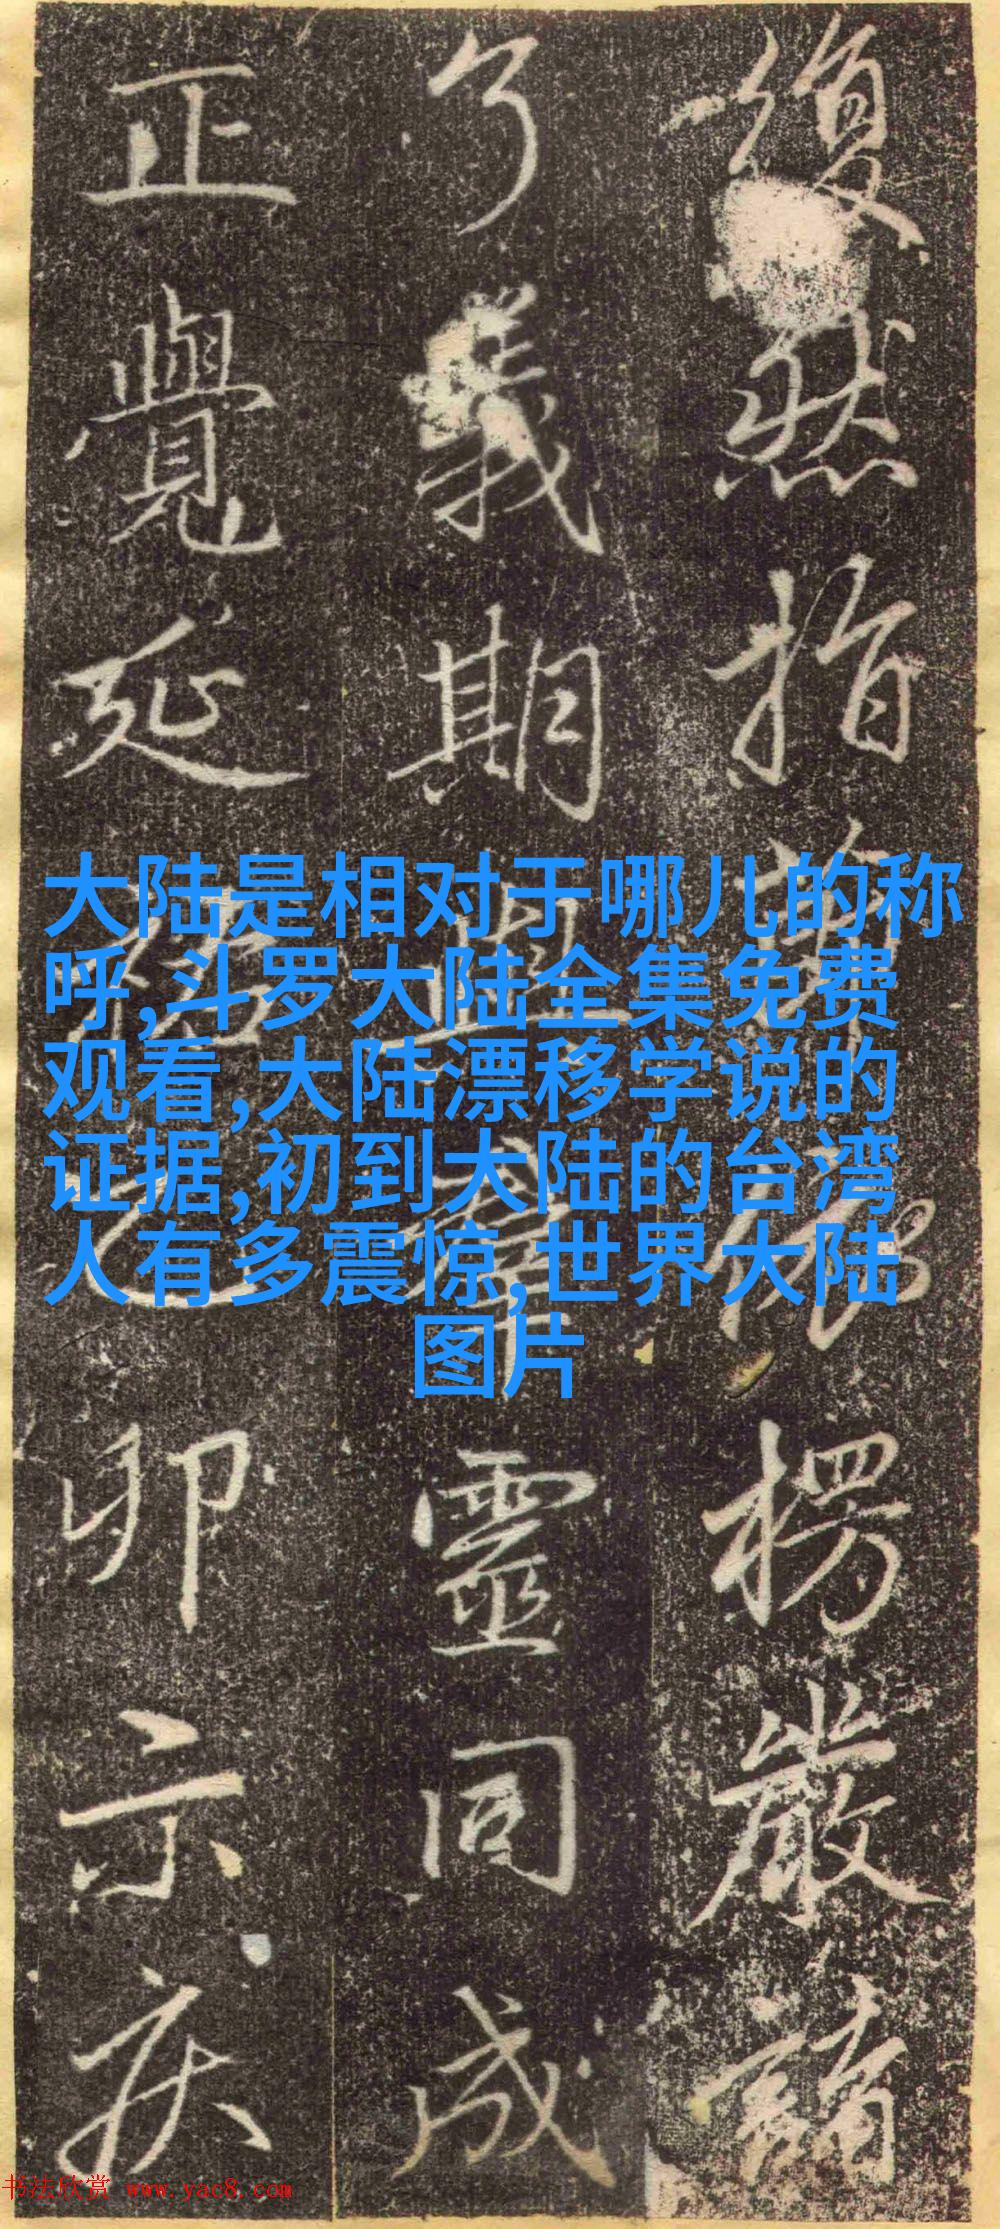 復然指楞嚴誦
了義期與羣靈同成
正覺延祐乙卯示疾
大陆是相对于哪儿的称
呼,斗罗大陆全集免费
观看,大陆漂移学说的
证据,初到大陆的台湾
人有多震惊,世界大陆
图片
书法欣赏 www.yac8.com